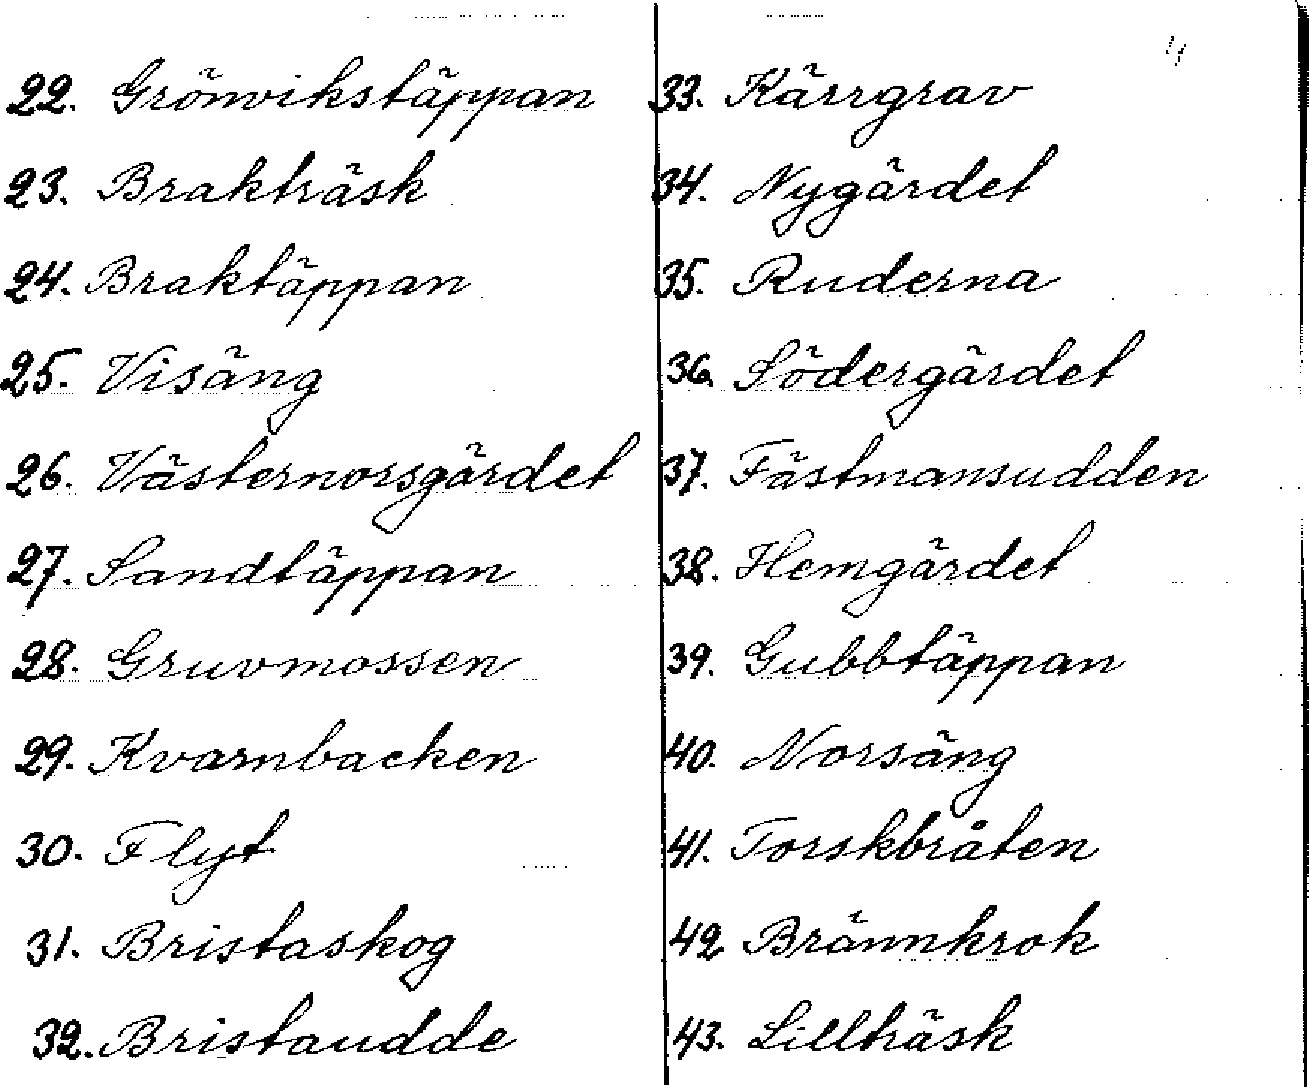 22. Grönvikstäppan
23. Brakträsk
24. Braktäppan
25. Visäng
26. Västernorsgärdet
27. Sandtäppan
28. Gruvmossen
29. Kvarnbacken
30. Flyt
31. Bristaskog
32. Bristaudde
33. Kärrgrav
34. Nygärdet
35. Ruderna
36. Södergärdet
37. Fästmansudden
38. Hemgärdet
39. Gubbtäppan
40. Norsäng
41. Torskbråten
42 Brännkrok
43. Lillträsk